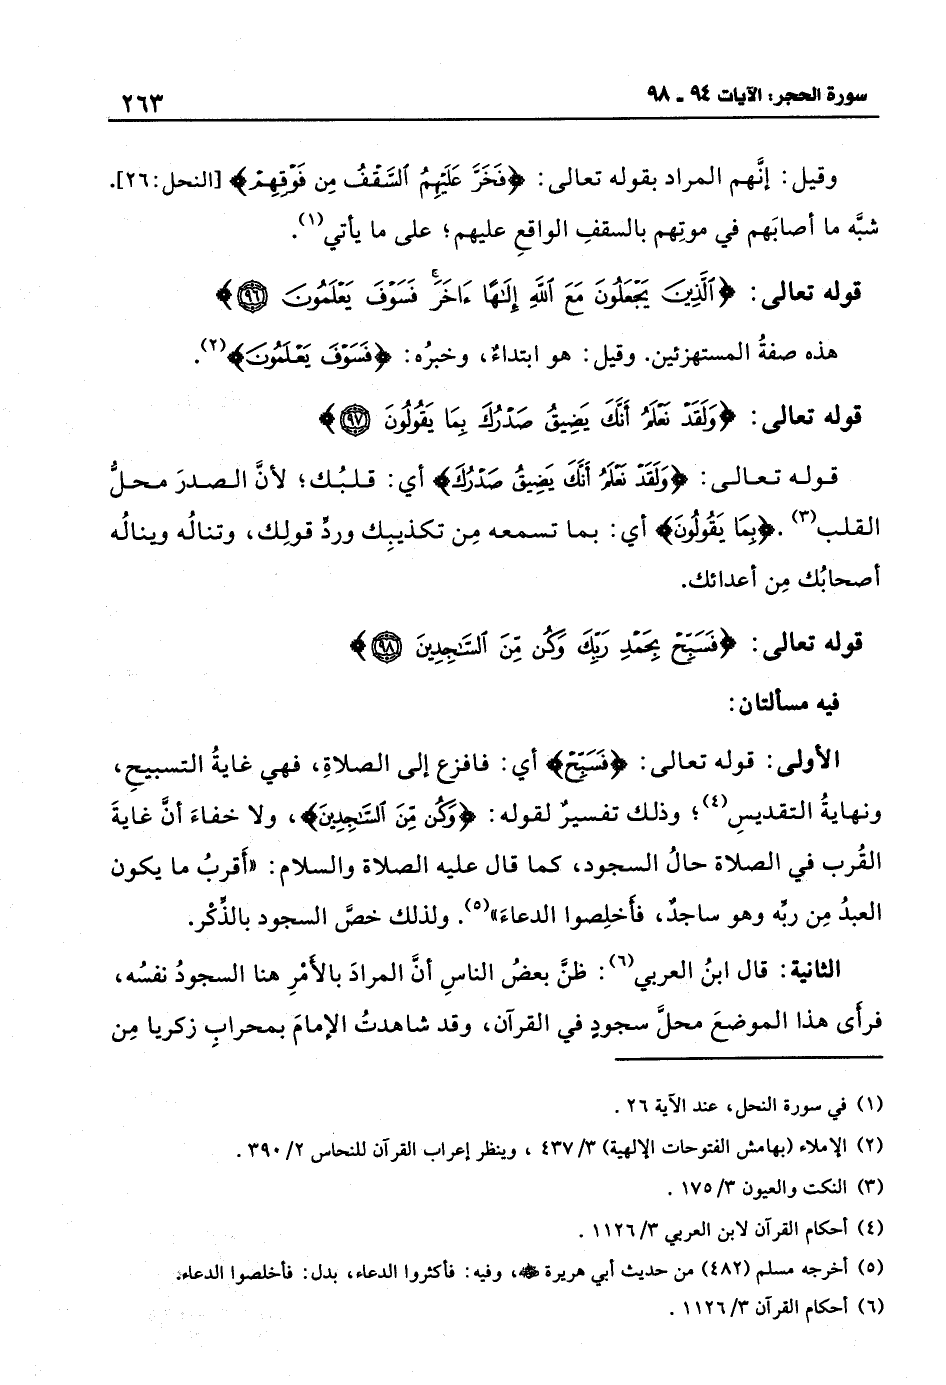 سورة الحجر: الآيات ٩٤ ـ ٩٨
٢٦٣
وقيل: إنَّهم المراد بقوله تعالى: ﴿فَخَرَّ عَلَيْهِمُ ٱلسَّقْفُ مِن فَوْقِهِمْ﴾ [النحل:٢٦].
شبَّه ما أصابَهم في موتِهم بالسقفِ الواقعِ عليهم؛ على ما يأتي(١).
قوله تعالى: ﴿ٱلَّذِينَ يَجْعَلُونَ مَعَ ٱللَّهِ إِلَٰهًا ءَاخَرَ ۚ فَسَوْفَ يَعْلَمُونَ ٩٦﴾
هذه صفةُ المستهزئين. وقيل: هو ابتداءٌ، وخبرُه: ﴿فَسَوْفَ يَعْلَمُونَ﴾(٢).
قوله تعالى: ﴿وَلَقَدْ نَعْلَمُ أَنَّكَ يَضِيقُ صَدْرُكَ بِمَا يَقُولُونَ ٩٧﴾
قوله تعالى: ﴿وَلَقَدْ نَعْلَمُ أَنَّكَ يَضِيقُ صَدْرُكَ﴾ أي: قلبُك؛ لأنَّ الصدرَ محلُّ
القلب(٣). ﴿بِمَا يَقُولُونَ﴾ أي: بما تسمعه مِن تكذيبِك وردِّ قولِك، وتنالُه وينالُه
أصحابُك مِن أعدائك.
قوله تعالى: ﴿فَسَبِّحْ بِحَمْدِ رَبِّكَ وَكُن مِّنَ ٱلسَّٰجِدِينَ ٩٨﴾
فيه مسألتان:
الأولى: قوله تعالى: ﴿فَسَبِّحْ﴾ أي: فافزع إلى الصلاةِ، فهي غايةُ التسبيحِ،
ونهايةُ التقديسِ(٤)؛ وذلك تفسيرٌ لقوله: ﴿وَكُن مِّنَ ٱلسَّٰجِدِينَ﴾، ولا خفاءَ أنَّ غايةَ
القُرب في الصلاة حالُ السجود، كما قال عليه الصلاة والسلام: «أقربُ ما يكون
العبدُ مِن ربِّه وهو ساجدٌ، فأَخلِصوا الدعاءَ»(٥). ولذلك خصَّ السجود بالذِّكْر.
الثانية: قال ابنُ العربي(٦): ظنَّ بعضُ الناسِ أنَّ المرادَ بالأَمْرِ هنا السجودُ نفسُه،
فرأَى هذا الموضعَ محلَّ سجودٍ في القرآن، وقد شاهدتُ الإمامَ بمحرابِ زكريا مِن
(١) في سورة النحل، عند الآية ٢٦ .
(٢) الإملاء (بهامش الفتوحات الإلهية) ٣/ ٤٣٧ ، وينظر إعراب القرآن للنحاس ٢/ ٣٩٠ .
(٣) النكت والعيون ٣/ ١٧٥ .
(٤) أحكام القرآن لابن العربي ٣/ ١١٢٦ .
(٥) أخرجه مسلم (٤٨٢) من حديث أبي هريرة ﷺ، وفيه: فأكثروا الدعاء، بدل: فأخلصوا الدعاء.
(٦) أحكام القرآن ٣/ ١١٢٦ .